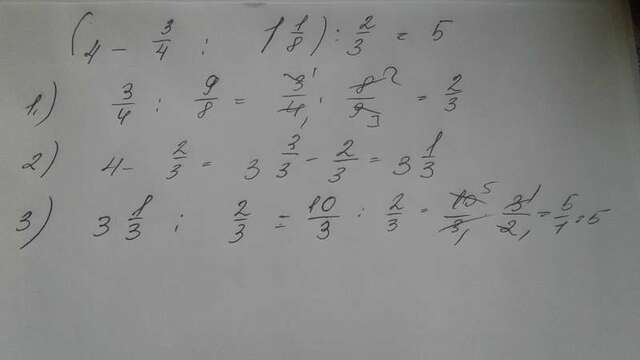 (4 - 3/4 : 1 1/8) : 2/3 = 5
1.) 3/4 : 9/8 = 3/4 · 8/9 = 2/3
2) 4 - 2/3 = 3 3/3 - 2/3 = 3 1/3
3) 3 1/3 : 2/3 = 10/3 : 2/3 = 10/3 · 3/2 = 5/1 = 5